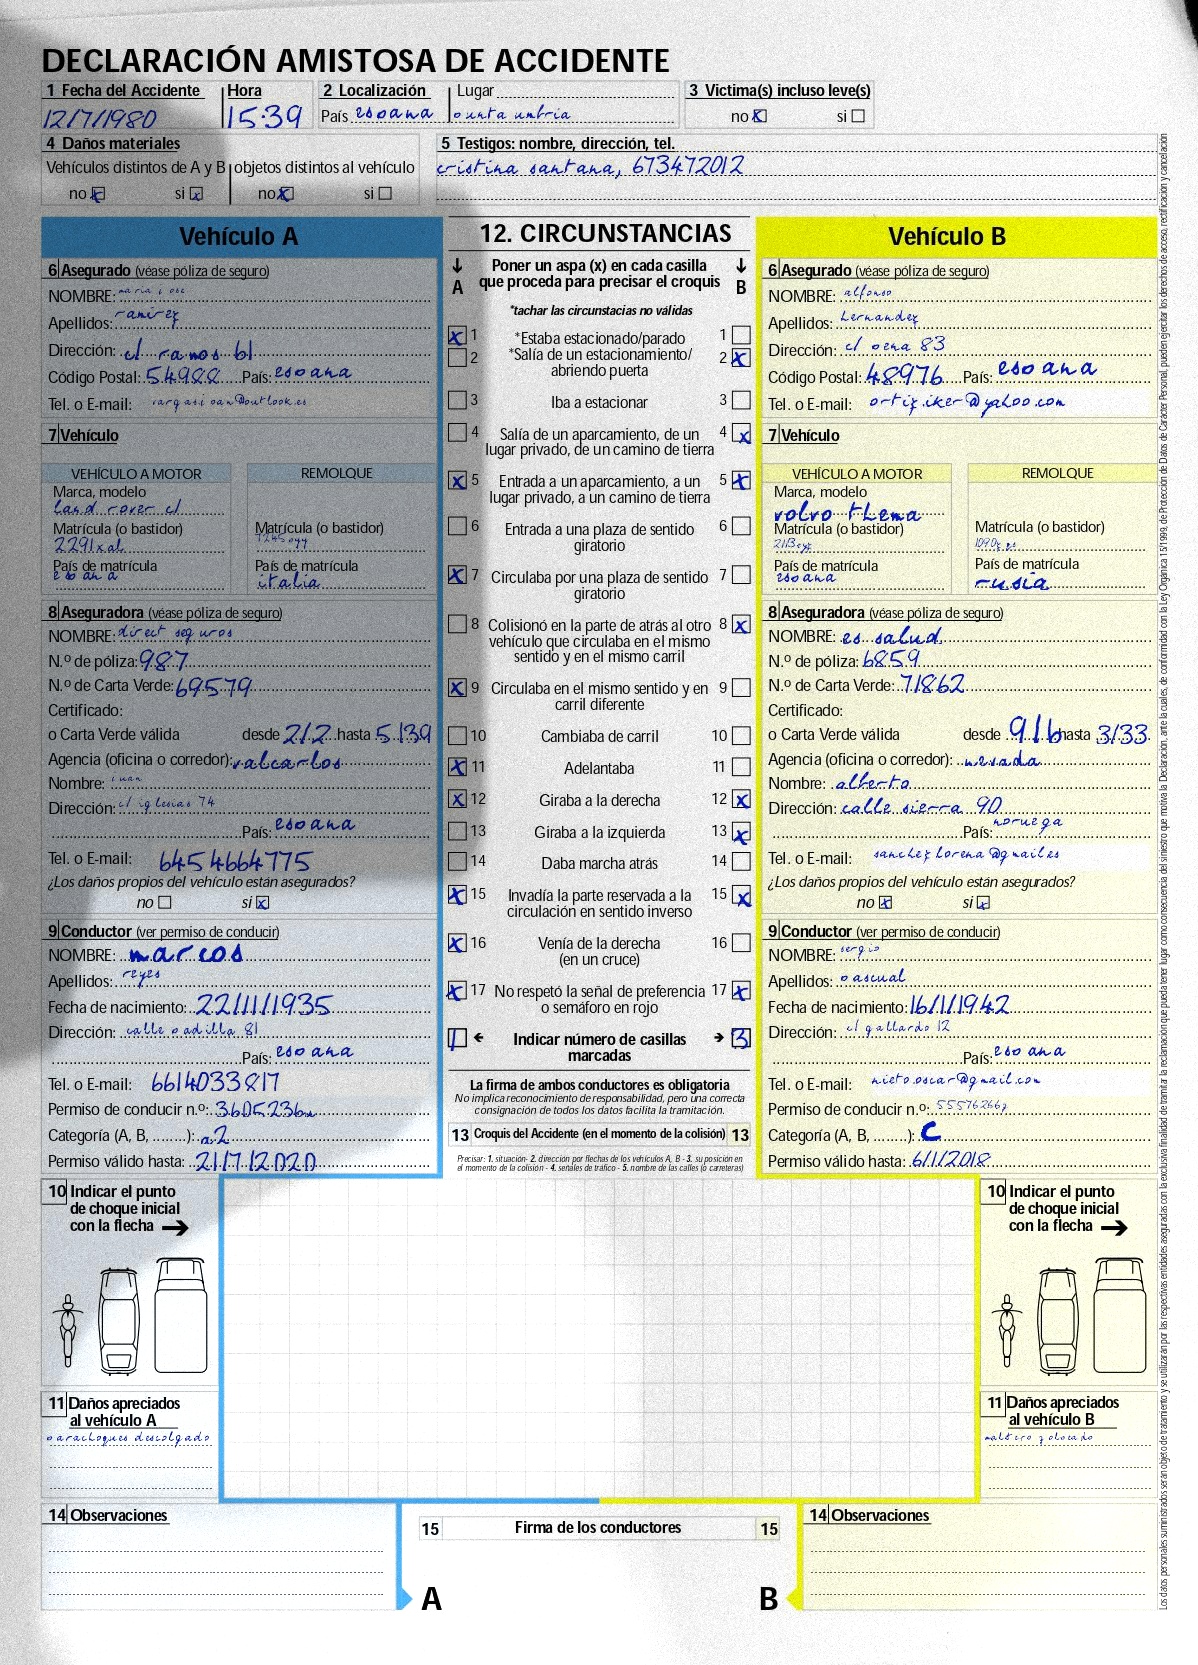 DECLARACIÓN AMISTOSA DE ACCIDENTE
1 Fecha del Accidente Hora 2 Localización Lugar 3 Victima(s) incluso leve(s)
12/7/1980 15:39 País espana punta umbria no x si
4 Daños materiales 5 Testigos: nombre, dirección, tel.
Vehículos distintos de A y B objetos distintos al vehículo cristina santana, 673472012
no x si x no x si
Vehículo A
6 Asegurado (véase póliza de seguro)
NOMBRE: maria jose
Apellidos: ramirez
Dirección: c/ ramos 61
Código Postal: 54988 País: espana
Tel. o E-mail: vargasjoan@outlook.es
7 Vehículo
VEHÍCULO A MOTOR REMOLQUE
Marca, modelo
land rover cl
Matrícula (o bastidor) Matrícula (o bastidor)
2291xal 7245oyy
País de matrícula País de matrícula
espana italia
8 Aseguradora (véase póliza de seguro)
NOMBRE: direct seguros
N.º de póliza: 987
N.º de Carta Verde: 69579
Certificado:
o Carta Verde válida desde 2/2 hasta 5/39
Agencia (oficina o corredor): valcarlos
Nombre: juan
Dirección: c/ iglesias 74
País: espana
Tel. o E-mail: 6454664775
¿Los daños propios del vehículo están asegurados?
no si x
9 Conductor (ver permiso de conducir)
NOMBRE: marcos
Apellidos: reyes
Fecha de nacimiento: 22/11/1935
Dirección: calle padilla 81
País: espana
Tel. o E-mail: 6614033817
Permiso de conducir n.º: 3605236w
Categoría (A, B, ........): a2
Permiso válido hasta: 21/7/2020
10 Indicar el punto
de choque inicial
con la flecha
11 Daños apreciados
al vehículo A
parachoques descolgado
14 Observaciones
12. CIRCUNSTANCIAS
Poner un aspa (x) en cada casilla
A que proceda para precisar el croquis B
*tachar las circunstacias no válidas
x 1 *Estaba estacionado/parado 1
2 *Salía de un estacionamiento/ 2 x
abriendo puerta
3 Iba a estacionar 3
4 Salía de un aparcamiento, de un 4 x
lugar privado, de un camino de tierra
x 5 Entrada a un aparcamiento, a un 5 x
lugar privado, a un camino de tierra
6 Entrada a una plaza de sentido 6
giratorio
x 7 Circulaba por una plaza de sentido 7
giratorio
8 Colisionó en la parte de atrás al otro 8 x
vehículo que circulaba en el mismo
sentido y en el mismo carril
x 9 Circulaba en el mismo sentido y en 9
carril diferente
10 Cambiaba de carril 10
x 11 Adelantaba 11
x 12 Giraba a la derecha 12 x
13 Giraba a la izquierda 13 x
14 Daba marcha atrás 14
x 15 Invadía la parte reservada a la 15 x
circulación en sentido inverso
x 16 Venía de la derecha 16
(en un cruce)
x 17 No respetó la señal de preferencia 17 x
o semáforo en rojo
1 Indicar número de casillas 3
marcadas
La firma de ambos conductores es obligatoria
No implica reconocimiento de responsabilidad, pero una correcta
consignación de todos los datos facilita la tramitación.
13 Croquis del Accidente (en el momento de la colisión) 13
Precisar: 1. situación- 2. dirección por flechas de los vehículos A, B - 3. su posición en
el momento de la colisión - 4. señales de tráfico - 5. nombre de las calles (o carreteras)
15 Firma de los conductores 15
A B
Vehículo B
6 Asegurado (véase póliza de seguro)
NOMBRE: alfonso
Apellidos: hernandez
Dirección: c/ pena 83
Código Postal: 48976 País: espana
Tel. o E-mail: ortiz.iker@yahoo.com
7 Vehículo
VEHÍCULO A MOTOR REMOLQUE
Marca, modelo
volvo thema
Matrícula (o bastidor) Matrícula (o bastidor)
País de matrícula País de matrícula
espana rusia
8 Aseguradora (véase póliza de seguro)
NOMBRE: es salud
N.º de póliza: 6859
N.º de Carta Verde: 71862
Certificado:
o Carta Verde válida desde 9/6 hasta 3/33
Agencia (oficina o corredor): nevada
Nombre: alberto
Dirección: calle sierra 90
País: noruega
Tel. o E-mail: sanchez.lorena@gmail.es
¿Los daños propios del vehículo están asegurados?
no x si x
9 Conductor (ver permiso de conducir)
NOMBRE: sergio
Apellidos: pascual
Fecha de nacimiento: 16/1/1942
Dirección: c/ gallardo 12
País: espana
Tel. o E-mail: nieto.oscar@gmail.com
Permiso de conducir n.º: 55576266z
Categoría (A, B, ........): C
Permiso válido hasta: 6/1/2018
10 Indicar el punto
de choque inicial
con la flecha
11 Daños apreciados
al vehículo B
maltero
14 Observaciones
Los datos personales suministrados seran objeto de tratamiento y se utilizaran por las respectivas entidades aseguradas con la exclusiva finalidad de tramitar la reclamación que pueda tener lugar como consecuencia del siniestro que motiva la Declaración, ante la cuales, de conformidad con la Ley Orgánica 15/1999, de Protección de Datos de Carácter Personal, pueden ejercitar los derechos de acceso, rectificación y cancelación